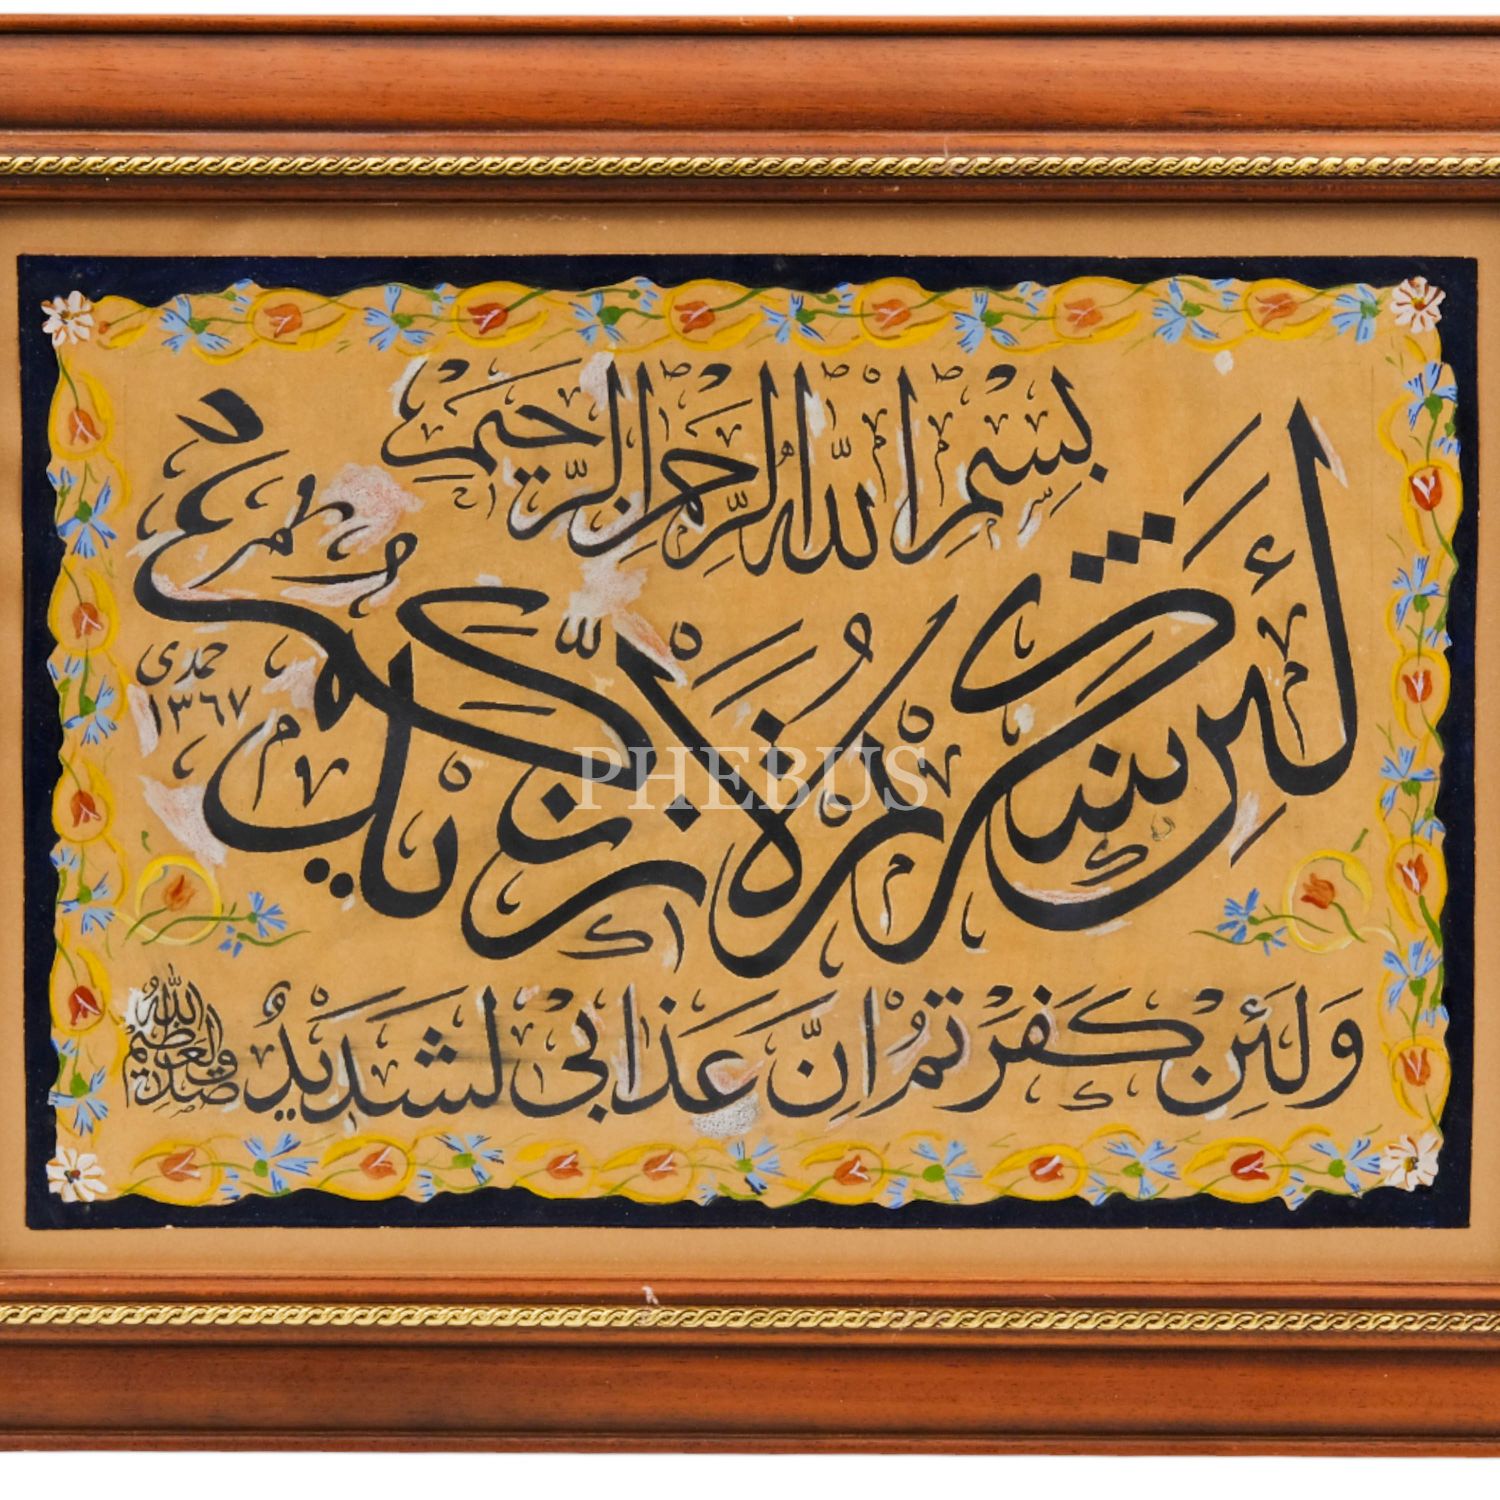 بِسْمِ اللهِ الرَّحْمنِ الرَّحِيمِ
لَئِنْ شَكَرْتُمْ لَاَزِيدَنَّكُمْ
حمدی
١٣٦٧
PHEBUS
وَلَئِنْ كَفَرْتُمْ اِنَّ عَذَابِى لَشَدِيدٌ
صدق الله العظيم